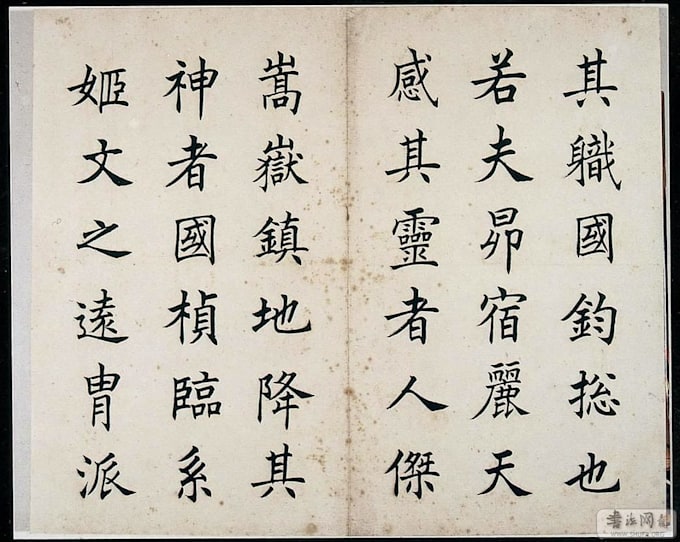 其軄國鈞揔也
若夫昴宿麗天
感其靈者人傑
嵩嶽鎮地降其
神者國楨臨系
姬文之遠胄派
书法网